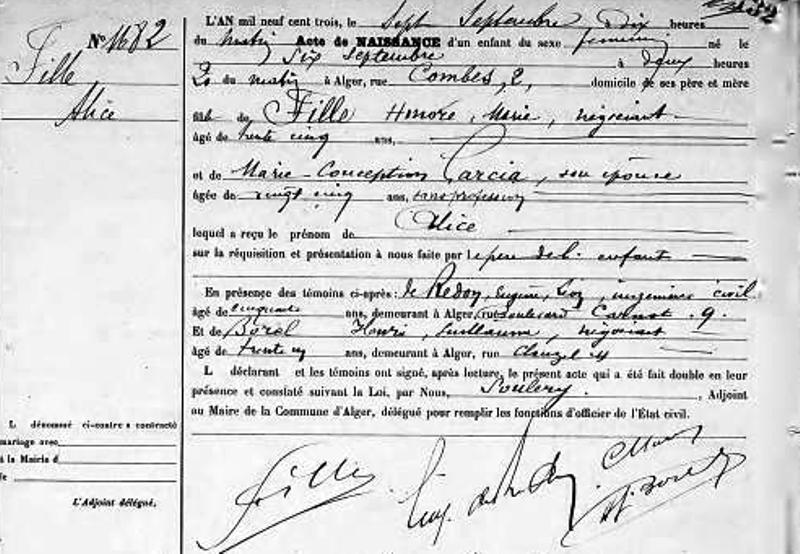 Nº 1682
Fille
Alice
L'AN mil neuf cent trois, le sept Septembre à dix heures
du matin Acte de NAISSANCE d'un enfant du sexe féminin né le
six septembre à deux heures
du matin à Alger, rue Combes, 2, domicile de ses père et mère
fils de Fille Honoré, Marie, négociant
âgé de trente cinq ans,
et de Marie-Conception Garcia, son épouse
âgée de vingt cinq ans, sans profession
lequel a reçu le prénom de Alice
sur la réquisition et présentation à nous faite par le père de l'enfant
En présence des témoins ci-après: de Redon, Eugène, ingénieur civil
âgé de cinquante ans, demeurant à Alger, rue boulevard Carnot 9.
Et de Borel Henri, Guillaume, négociant
âgé de trente ans, demeurant à Alger, rue Clauzel
L déclarant et les témoins ont signé, après lecture, le présent acte qui a été fait double en leur
présence et constaté suivant la Loi, par Nous, Soulery, Adjoint
au Maire de la Commune d'Alger, délégué pour remplir les fonctions d'officier de l'État civil.
L dénommé ci-contre a contracté
mariage avec
à la Mairie d
le
L'Adjoint délégué,
Fille
Eug. de Redon
H. Borel